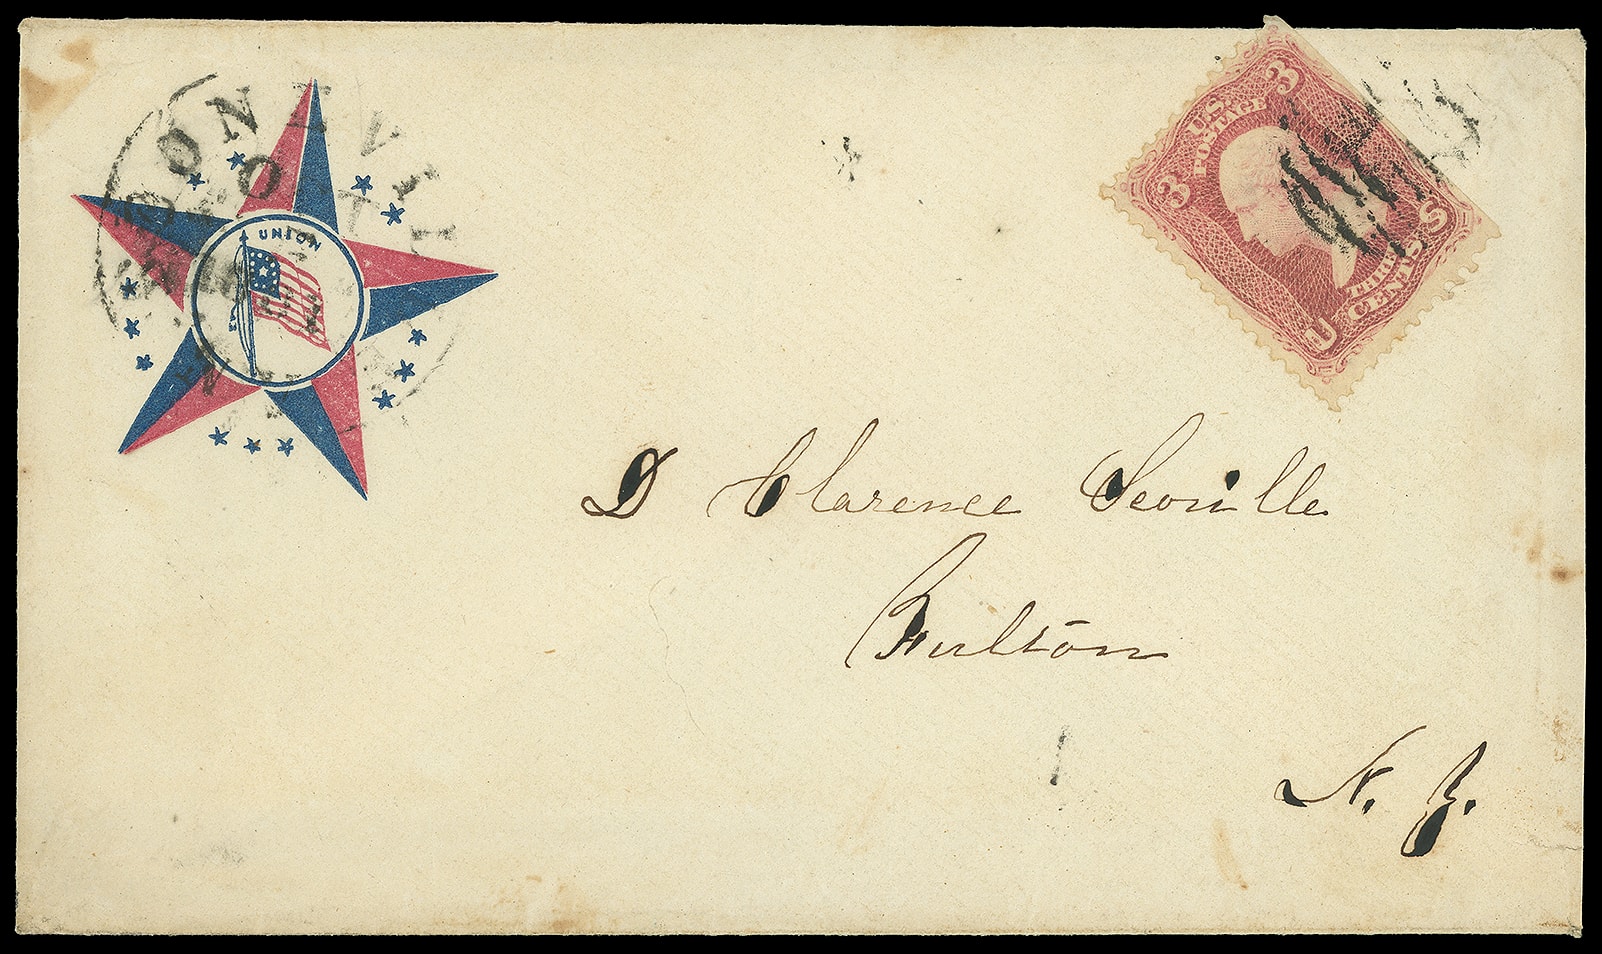 BOONEVILL
OCT
UNION
3
U.S.
POSTAGE
3
THREE
CENTS
U
S
D Clarence Scoville
Fulton
N. Y.